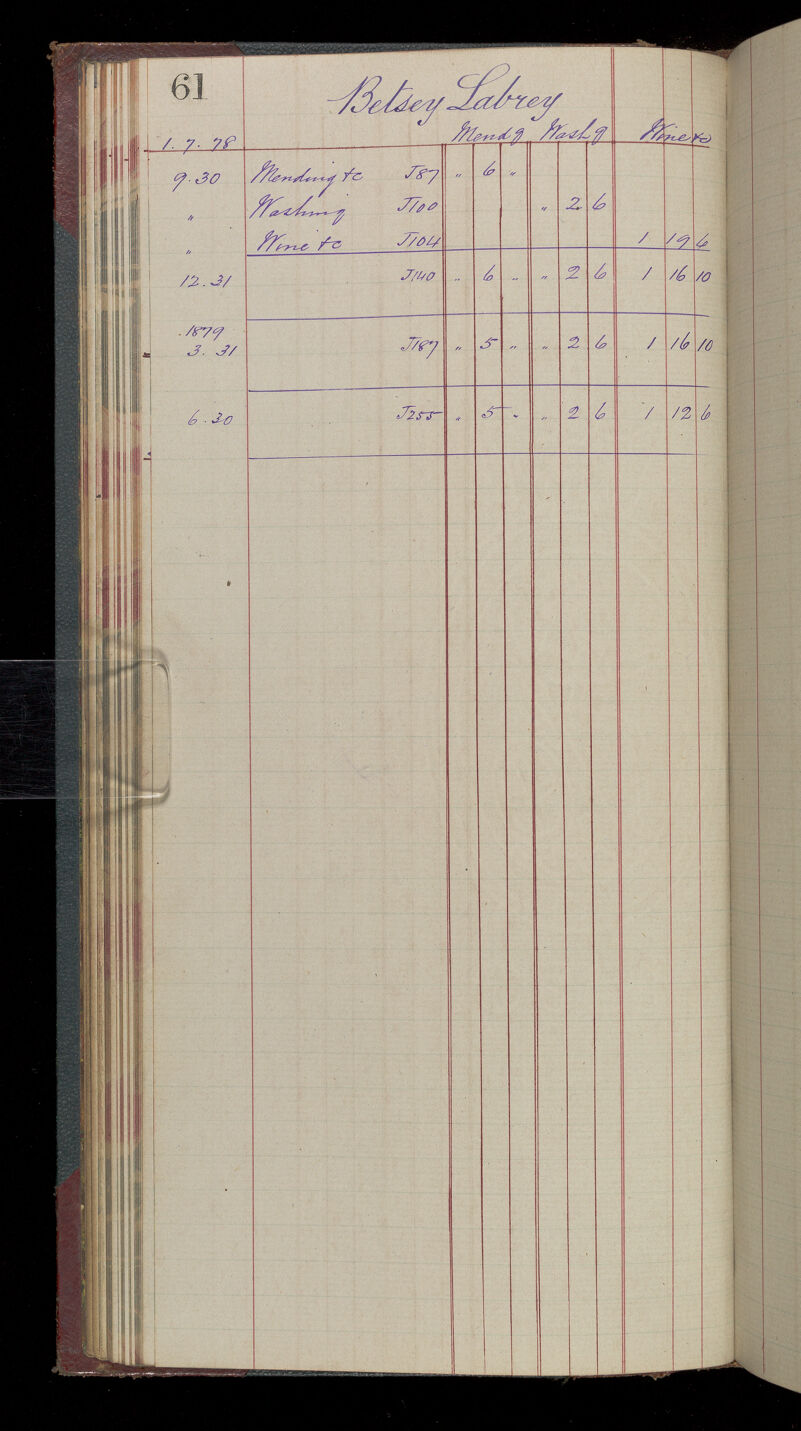 61
Betsey Labrey
1. 7. 78 Mendg Washg Wine &c
9. 30 Mending &c J87 " 6 "
" Washing J100 " 2 6
" Wine &c J104 1 19 6
12. 31 J140 " 6 " " 2 6 1 16 10
1879
3. 31 J187 " 5 " " 2 6 1 16 10
6. 30 J255 " 5 " " 2 6 1 12 6